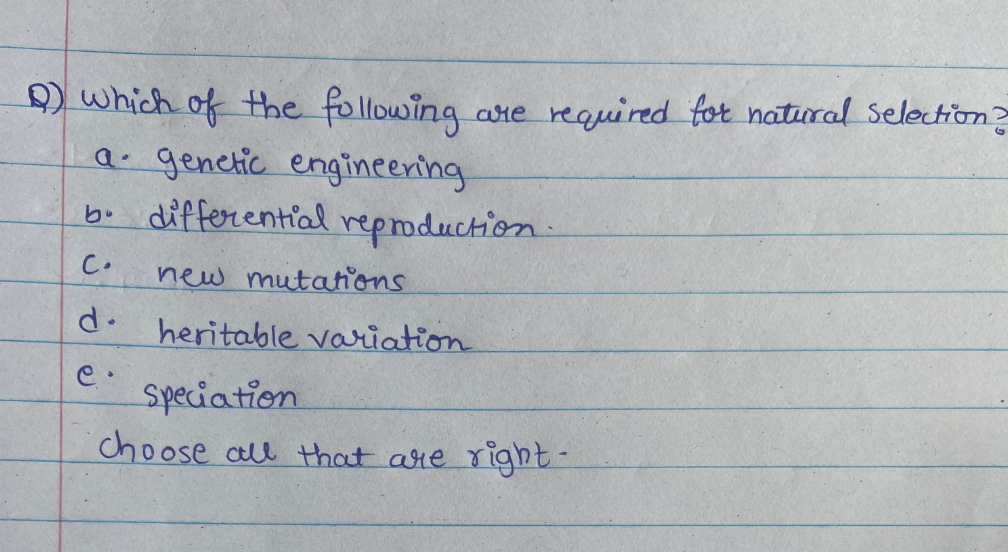 Q) which of the following are required for natural selection?
a. genetic engineering
b. differential reproduction.
c. new mutations
d. heritable variation
e. speciation
choose all that are right-